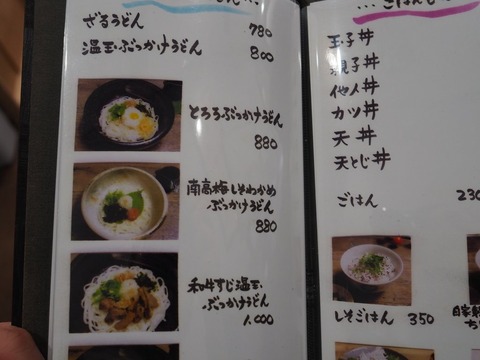 ざるうどん 780
温玉ぶっかけうどん 800
とろろぶっかけうどん
880
南高梅しそわかめ
ぶっかけうどん
880
和牛すじ温玉
ぶっかけうどん
1,000
玉子丼
親子丼
他人丼
カツ丼
天丼
天とじ丼
ごはん 230
しそごはん 350